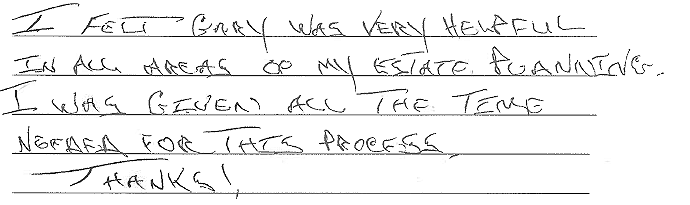 I FELT GARY WAS VERY HELPFUL
IN ALL AREAS OF MY ESTATE PLANNING.
I WAS GIVEN ALL THE TIME
NEEDED FOR THIS PROCESS.
THANKS!